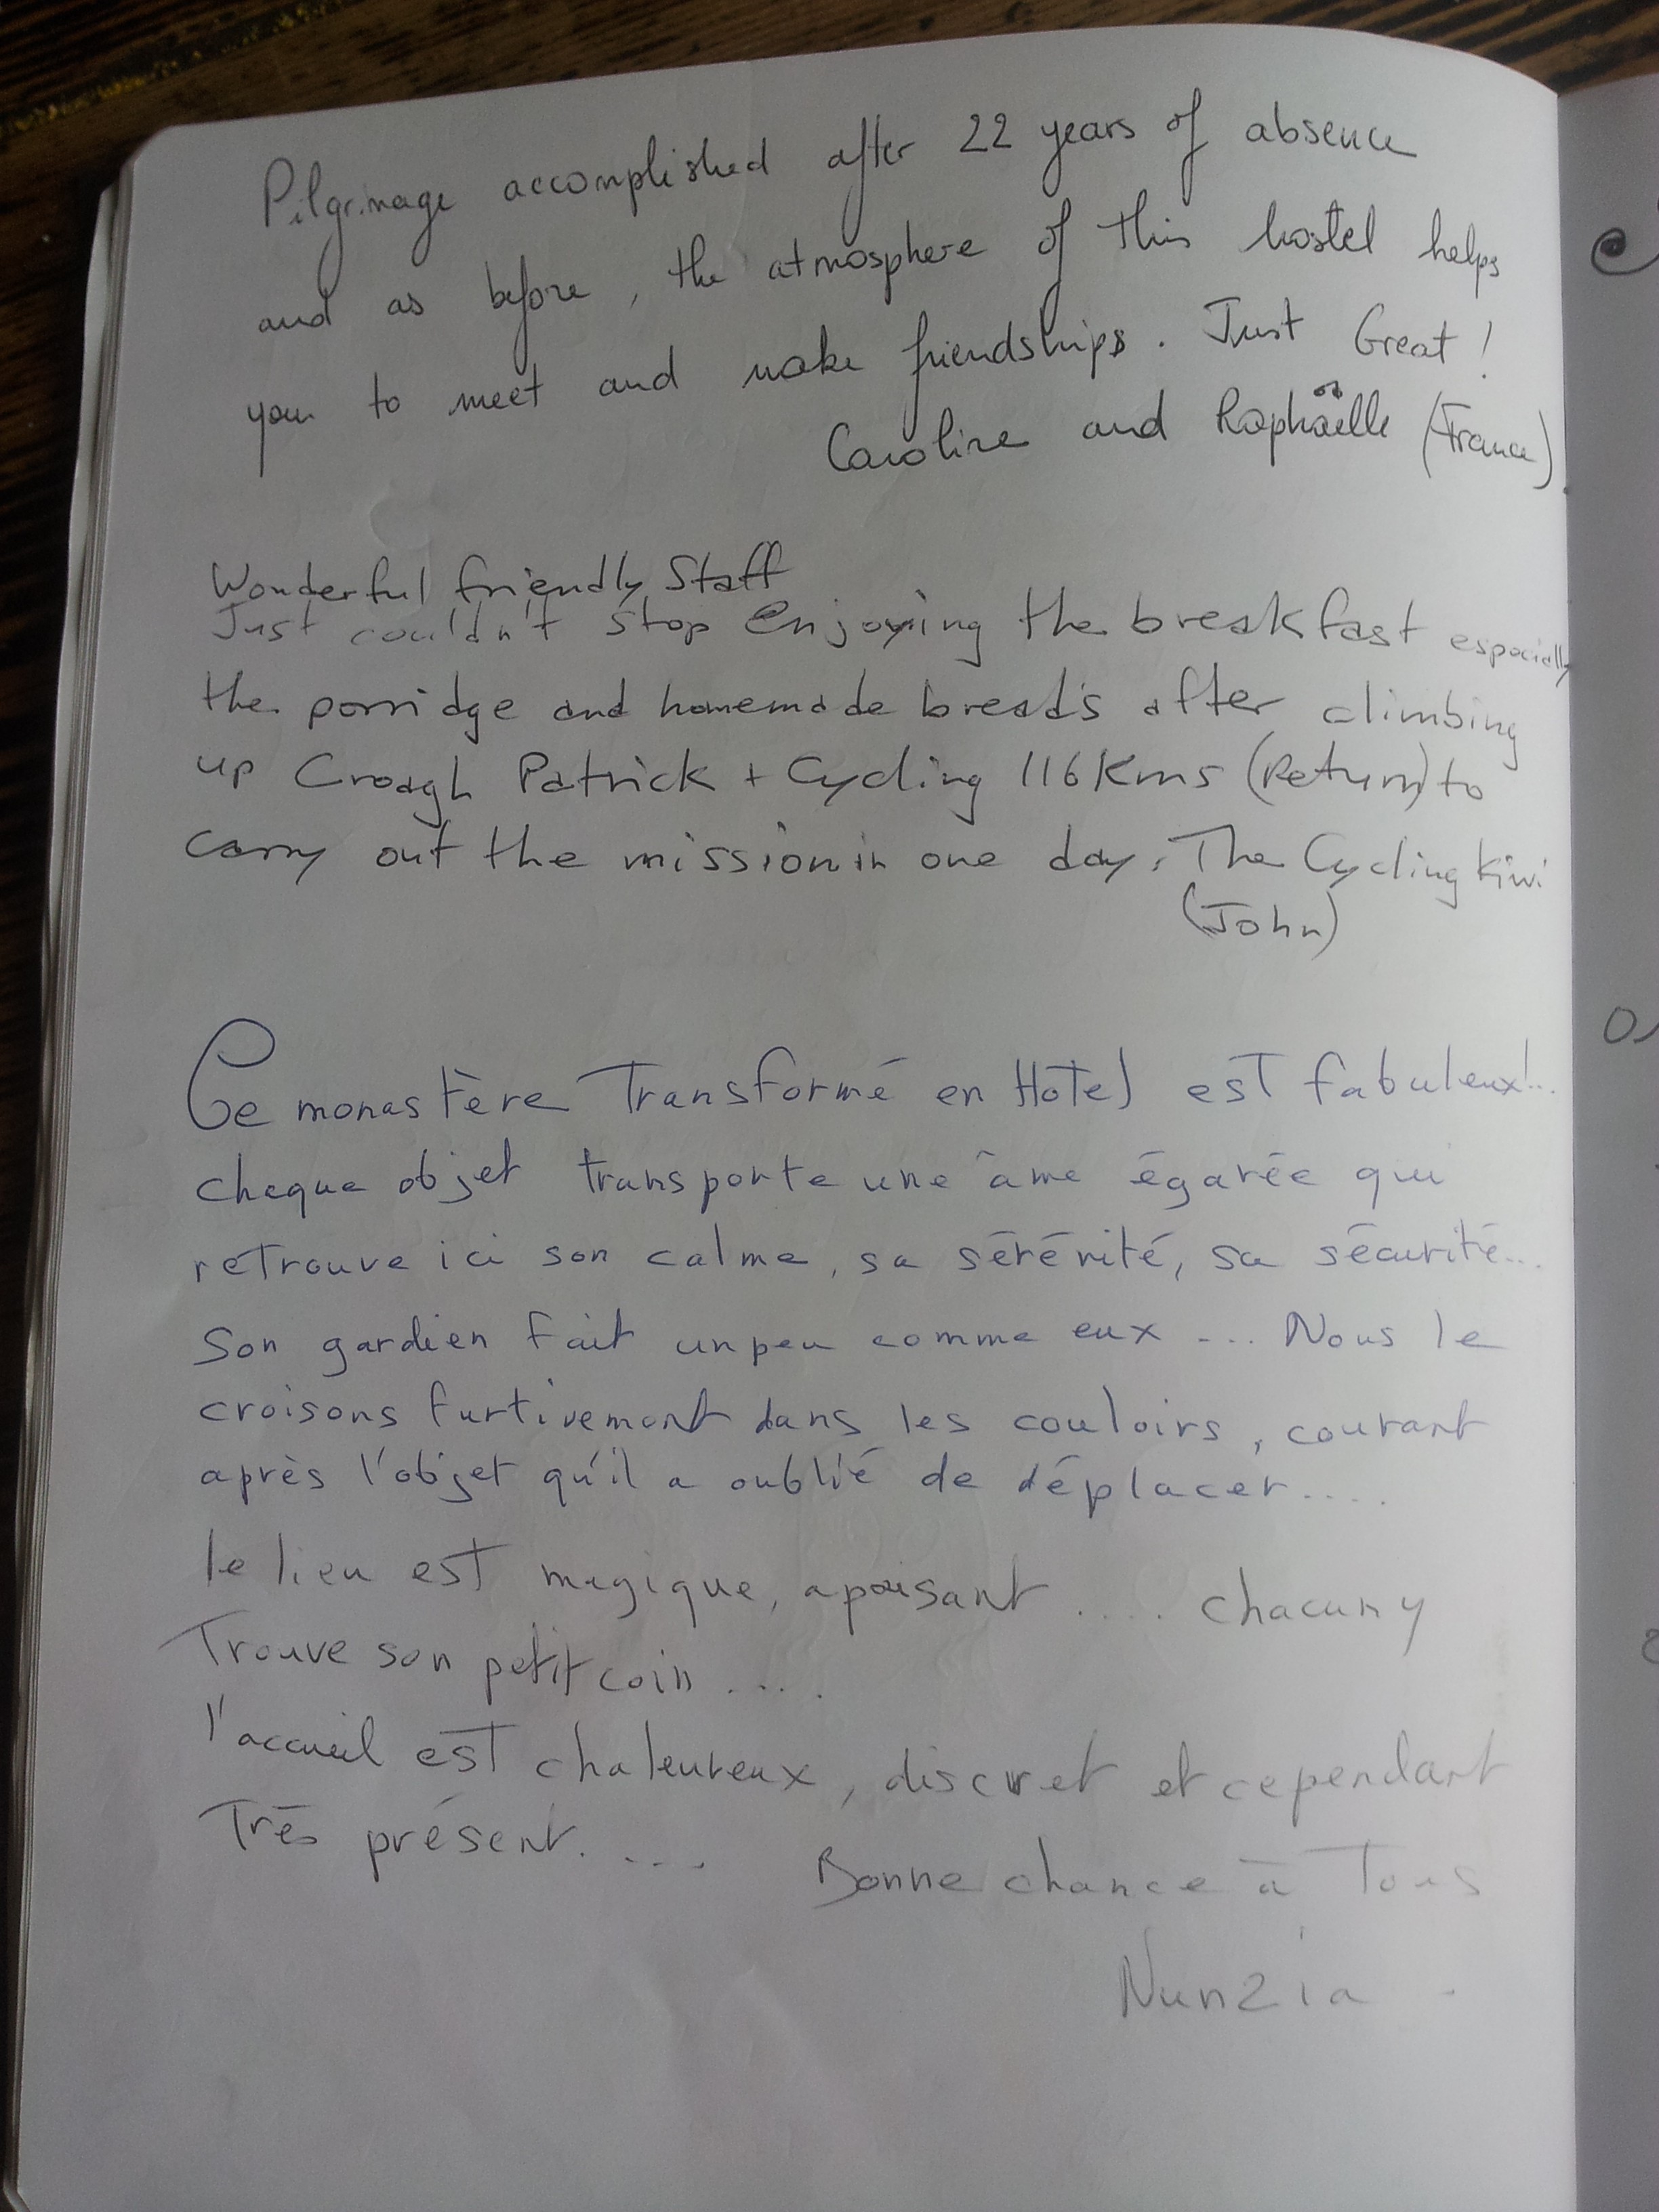 Pilgrimage accomplished after 22 years of absence
and as before, the atmosphere of this hostel helps
you to meet and make friendships. Just Great!
Caroline and Raphaëlle (France).
Wonderful friendly Staff
Just couldn't stop enjoying the breakfast especially
the porridge and homemade bread's after climbing
up Croagh Patrick + Cycling 116 Kms (Return) to
carry out the mission in one day. The Cycling Kiwi
(John)
Ce monastère Transformé en Hôtel est fabuleux!...
chaque objet transporte une âme égarée qui
retrouve ici son calme, sa sérénité, sa sécurité...
Son gardien fait un peu comme eux ... Nous le
croisons furtivement dans les couloirs, courant
après l'objet qu'il a oublié de déplacer....
le lieu est magique, apaisant .... chacun y
Trouve son petit coin ....
l'accueil est chaleureux, discret et cependant
Très présent. ...
Bonne chance à Tous
Nunzia